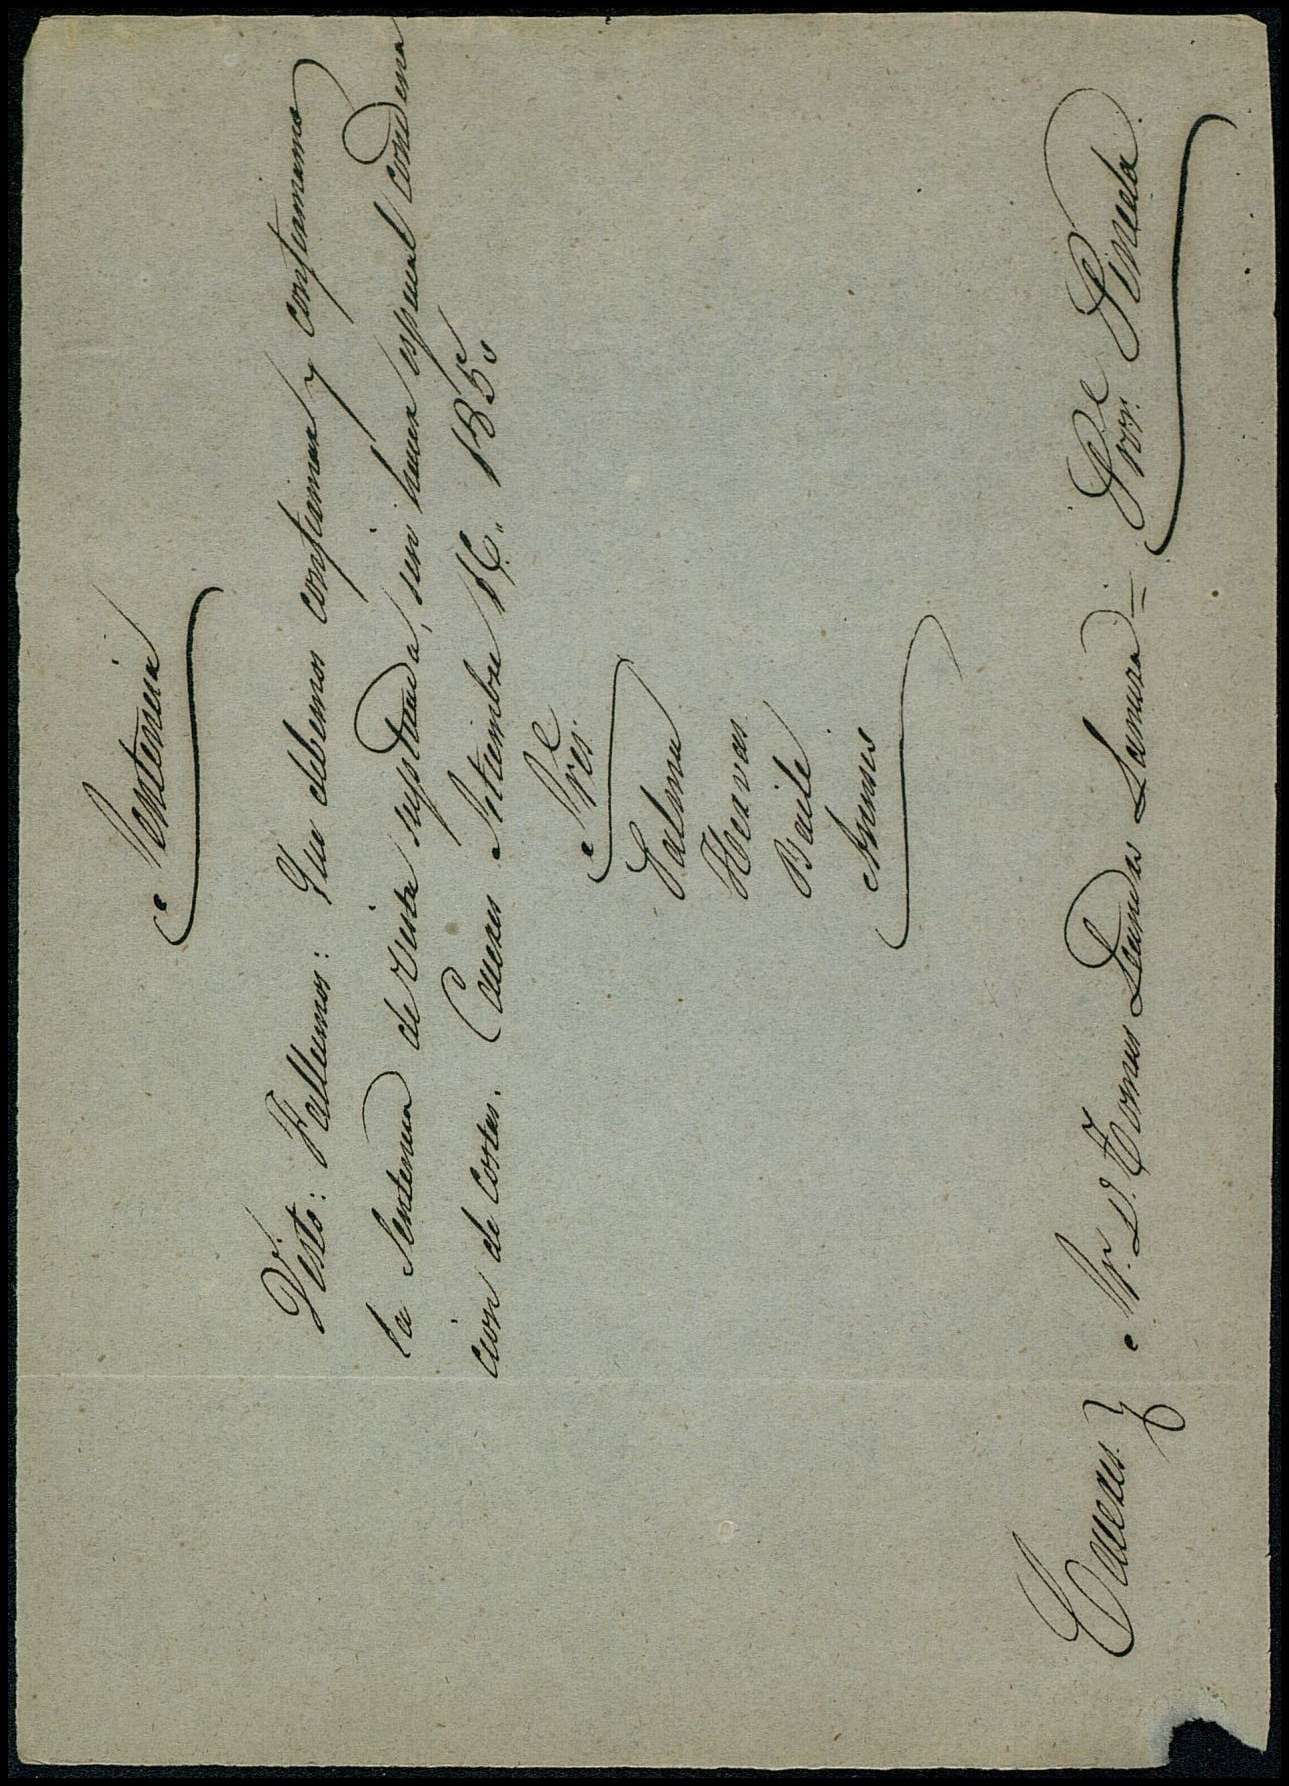 Sentencia
Visto: Fallamos: Que debemos confirmar y confirmamos
la Sentencia de vista suplicada, sin hacer especial condena
cion de costas. Caceres Setiembre 16. 185
Sres.
Palma
Hervas
Baile
Caceres y Sr. D. Tomas Leandes = Por Pineda